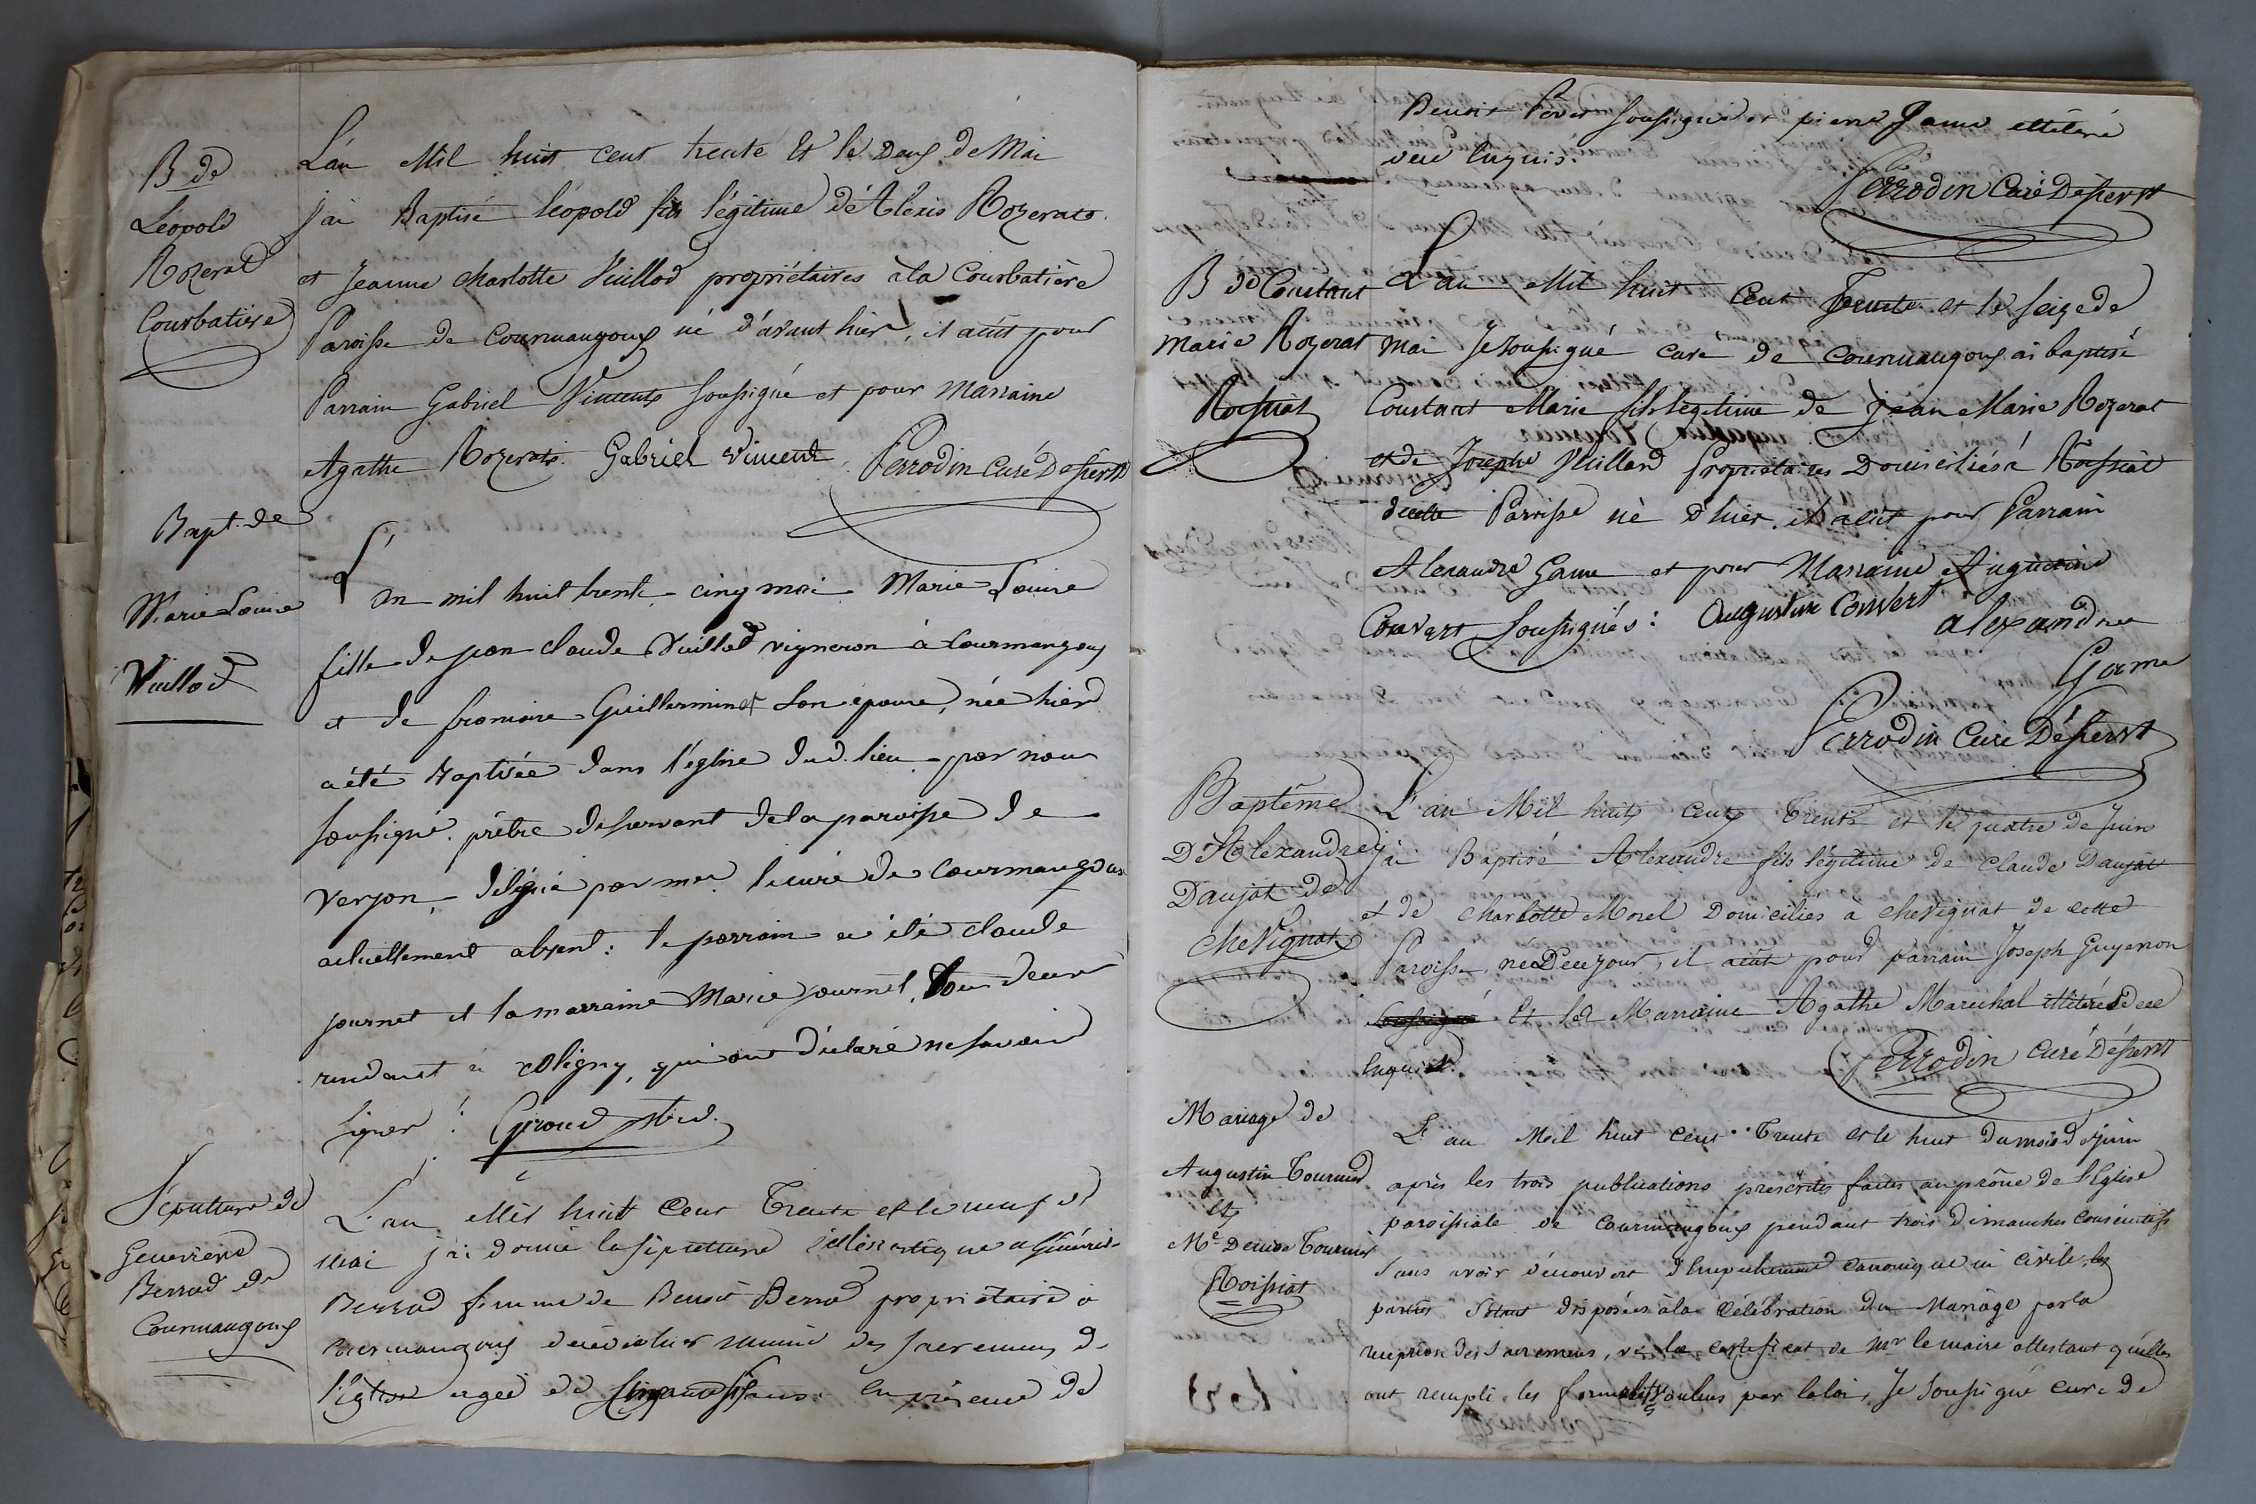 B de
Léopold
Rozerat
Courbatière
L'an Mil huit cent trente Et le Deux De Mai
j'ai Baptisé léopold fils légitime d'Aléxis Rozerat
et Jeanne charlotte Vuillod propriétaires à la Courbatière
Paroisse de Courmangoux né d'avant hier, il a eût pour
Parrain Gabriel Vincent soussigné et pour Marraine
Agathe Rozerat. Gabriel Vincent Perrodin Curé Desservt
Bapt. de
Marie Louise
Vuillod
L'an mil huit trente cinq mai Marie Louise
fille de jean claude Vuillod vigneron à Courmangoux
et de françoise Guillerminet son epouse, née hier
a été baptisée dans l'église dud. lieu par nous
soussigné prêtre desservant de la paroisse de
verjon, délégué par mr le curé de Courmangoux
actuellement absent : le parrain a été claude
journet et la marraine Marie journet, tous deux
residant à coligny, qui ont déclaré ne savoir
signer : Giroud
Sepulture de
Genevieve
Berrod de
Courmangoux
L'an Mil huit Cent Trente et le neuf de
mai j'ai donné la sépulture éclésiastique a Généviève
Berrod femme de Benoit Berrod propriétaire à
Courmangoux decédée hier munie des sacremens de
l'Eglise agée de ans. En présence de
Benoit soussigné et pierre Game illitéré
de ce Enquis.
Perrodin Curé Desservt
B de Constant
Marie Rozerat
Roissiat
L'an Mil huit Cent Trente et le seize de
Mai Je soussigné Curé de Courmangoux ai baptisé
Constant Marie fils légitime de jean Marie Rozerat
et de Josephe Vuillard Propriétaires Domiciliés à Roissiat
de cette Paroisse né d'hier, il a eût pour Parrain
Alexandre Game et pour Marraine Augustine
Convert soussignés : Augustine Convert
alexandre
Game
Perrodin Curé Désservt
Baptême
D'Aléxandre
Daujat de
Chevignat
L'an Mil huit Cent Trente et le quatre de Juin
j'ai Baptisé Aléxandre fils légitime de Claude Daujat
et de Charlotte Morel Domiciliés a Chevignat de cette
Paroisse, né De ce jour, il a eût pour parrain Joseph Guyenon
soussigné Et pour Marraine Agathe Maréchal illitérés de ce
Enquis.
Perrodin Curé Désservt
Mariage de
Augustin Tournier
et
Me Denise Tournier
Roissiat
L'an Mil huit Cent Trente et le huit du mois de Juin
après les trois publications prescrites faites au prône de l'Eglise
paroissiale de Courmangoux pendant trois Dimanches consécutifs
sans avoir découvert d'Empechement canonique ni civile, les
parties s'étant disposées à la célébration du Mariage par la
reception des Sacremens, vu le certificat de Mr le maire attestant qu'elles
ont rempli les formalités voulues par la loi, Je soussigné curé de